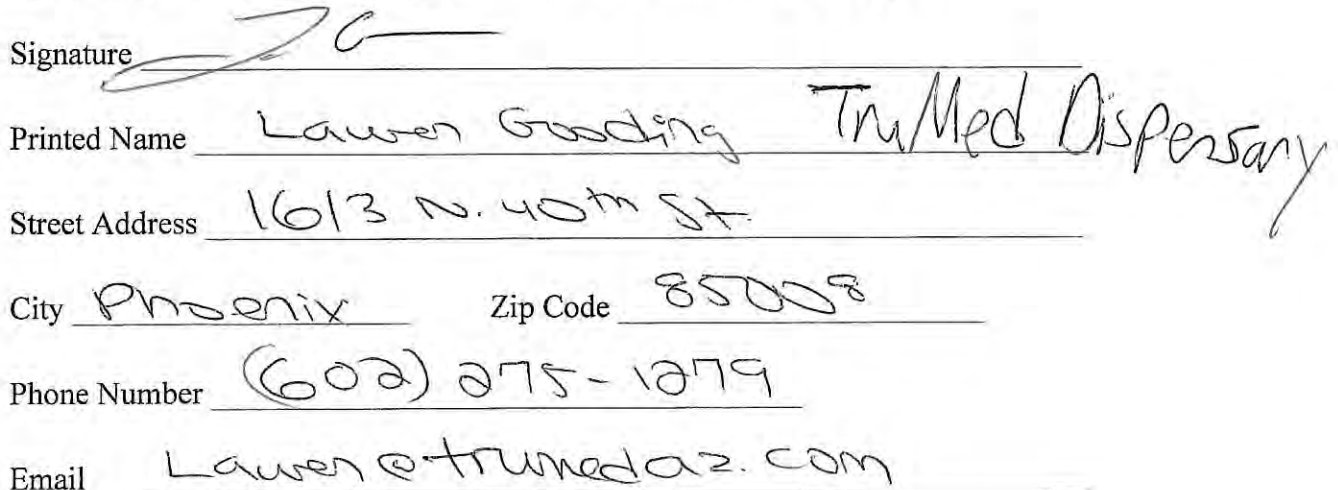 Signature
Printed Name Lauren Gooding TruMed Dispensary
Street Address 1613 N. 40th St.
City Phoenix Zip Code 85008
Phone Number (602) 275-1279
Email Lauren@trumedaz.com